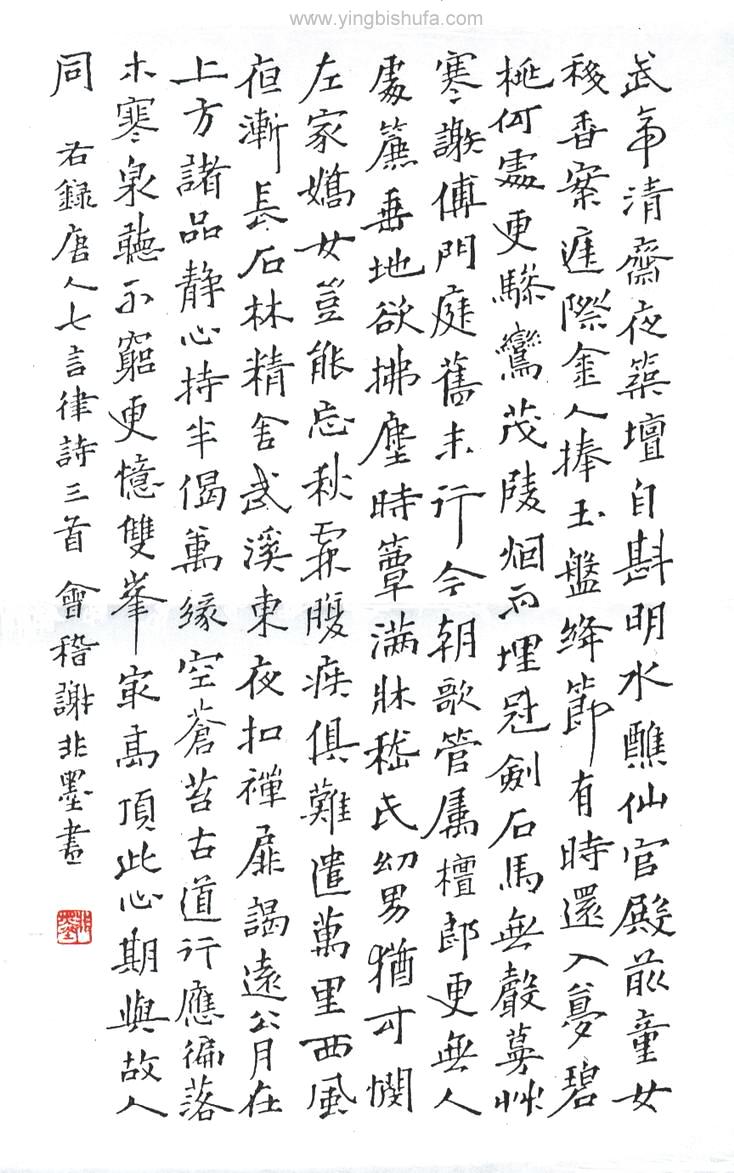 www.yingbishufa.com
武帝清齋夜築壇自斟明水醮仙官殿前童女
移香案際金人捧玉盤絳節有時還入夢碧
桃何處更驂鸞茂陵烟雨埋冠劍石馬無聲蔓艸
寒謝傅門庭舊末行今朝歌管屬檀郎更無人
處簾垂地欲拂塵時簟滿牀嵇氏幼男猶可憫
左家嬌女豈能忘秋霖腹疾俱難遣萬里西風
夜漸長石林精舍武溪東夜扣禪扉謁遠公月在
上方諸品靜心持半偈萬緣空蒼苔古道行應徧落
木寒泉聽不窮更憶雙峯最高頂此心期與故人
同 右錄唐人七言律詩三首 會稽謝非墨書